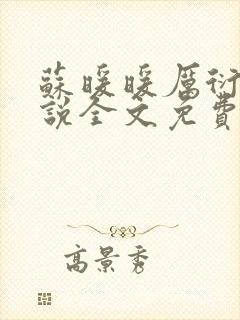 蘇暖暖厲衍
說全文免費
高景秀